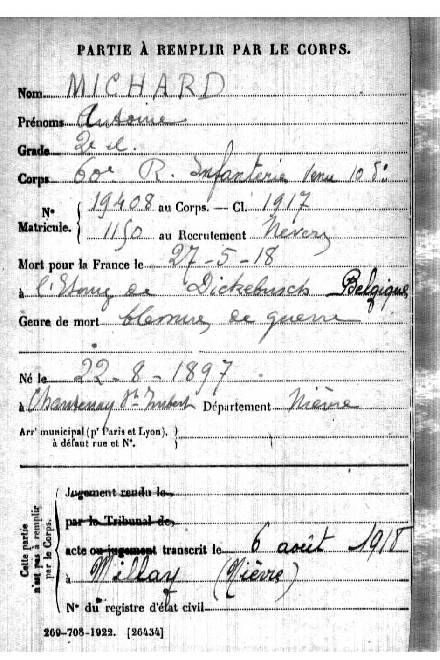 PARTIE À REMPLIR PAR LE CORPS.
Nom MICHARD
Prénoms Antoine
Grade 2e cl.
Corps 60e R. Infanterie venu 108e
N° Matricule. { 19408 au Corps. — Cl. 1917
1150 au Recrutement Nevers
Mort pour la France le 27-5-18
à l'Etang de Dickebusch Belgique
Genre de mort blessures de guerre
Né le 22-8-1897
à Chantenay St Imbert Département Nièvre
Arrt municipal (pr Paris et Lyon),
à défaut rue et N°.
Cette partie n'est pas à remplir par le Corps.
Jugement rendu le
par le Tribunal de
acte ou jugement transcrit le 6 août 1918
à Millay (Nièvre)
N° du registre d'état civil
269-708-1922. [26434]